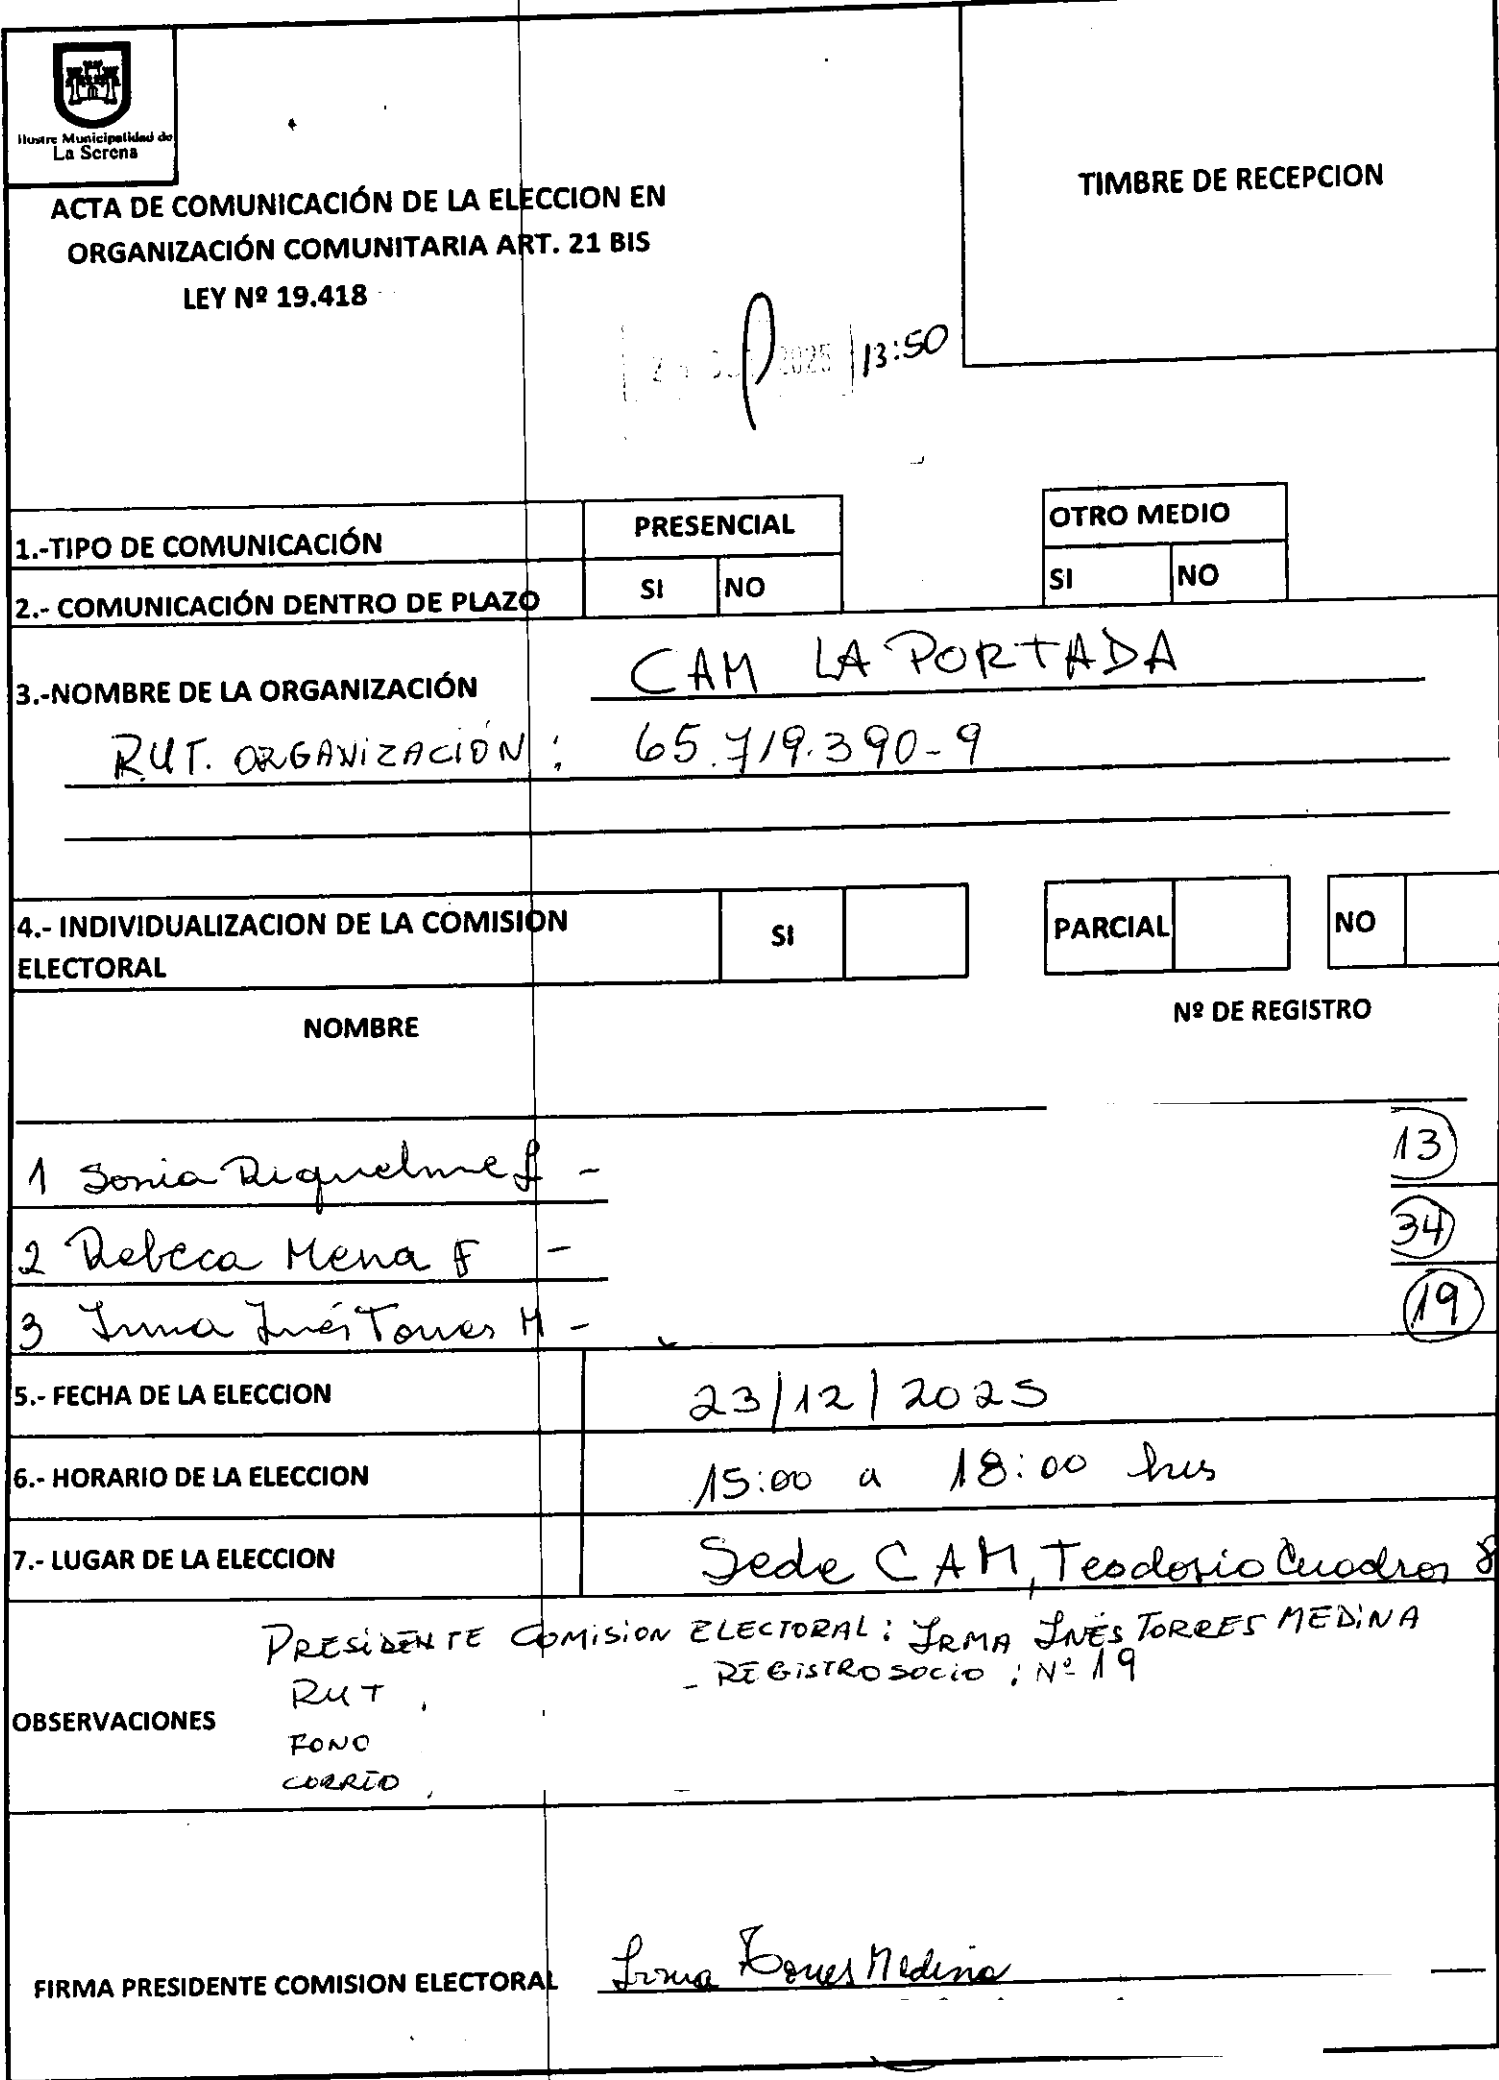 Ilustre Municipalidad de
La Serena
TIMBRE DE RECEPCION
ACTA DE COMUNICACIÓN DE LA ELECCION EN
ORGANIZACIÓN COMUNITARIA ART. 21 BIS
LEY Nº 19.418
2025 13:50
1.-TIPO DE COMUNICACIÓN PRESENCIAL OTRO MEDIO
2.- COMUNICACIÓN DENTRO DE PLAZO SI NO SI NO
3.-NOMBRE DE LA ORGANIZACIÓN CAM LA PORTADA
R.U.T. ORGANIZACIÓN : 65.719.390-9
4.- INDIVIDUALIZACION DE LA COMISION
ELECTORAL SI PARCIAL NO
NOMBRE Nº DE REGISTRO
1 Sonia Riquelme L - 13
2 Rebeca Mena F - 34
3 Irma Inés Torres M - 19
5.- FECHA DE LA ELECCION 23/12/2025
6.- HORARIO DE LA ELECCION 15:00 a 18:00 hrs
7.- LUGAR DE LA ELECCION Sede CAM, Teodosio Cuadros 8
PRESIDENTE COMISION ELECTORAL: IRMA INÉS TORRES MEDINA
RUT - REGISTRO SOCIO : Nº 19
OBSERVACIONES
FONO
CORREO
FIRMA PRESIDENTE COMISION ELECTORAL Irma Torres Medina